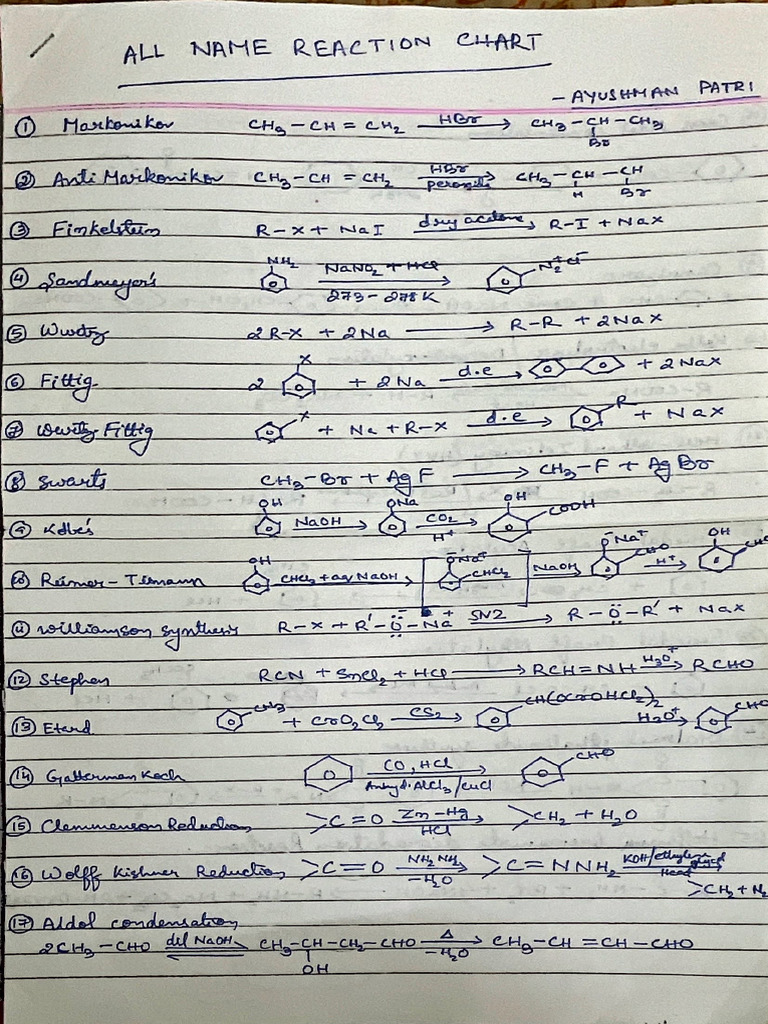 ALL NAME REACTION CHART
- AYUSHMAN PATRI
① Markonikov CH3-CH=CH2 —HBr→ CH3-CH-CH3
Br
② Anti Markonikov CH3-CH=CH2 —HBr peroxide→ CH3-CH-CH
H Br
③ Finkelstein R-X + NaI —dry acetone→ R-I + NaX
④ Sandmeyer's NH2 —NaNO2 + HCl 273-278K→ N2+Cl-
⑤ Wurtz 2R-X + 2Na → R-R + 2NaX
⑥ Fittig 2 X + 2Na —d.e→ + 2NaX
⑦ Wurtz Fittig X + Na + R-X —d.e→ R + NaX
⑧ Swarts CH3-Br + AgF → CH3-F + AgBr
⑨ Kolbe's OH —NaOH→ ONa —CO2 H+→ OH COOH
⑩ Reimer-Tiemann OH —CHCl3 + aq NaOH→ [O-Na+ CHCl2] —NaOH→ O-Na+ CHO —H+→ OH CHO
⑪ Williamson synthesis R-X + R'-Ö-Na+ —SN2→ R-Ö-R' + NaX
⑫ Stephen RCN + SnCl2 + HCl → RCH=NH —H3O+→ RCHO
⑬ Etard CH3 + CrO2Cl2 —CS2→ CH(OCrOHCl2)2 —H3O+→ CHO
⑭ Gatterman Koch —CO, HCl Anhyd. AlCl3/CuCl→ CHO
⑮ Clemmenson Reduction >C=O —Zn-Hg HCl→ >CH2 + H2O
⑯ Wolff Kishner Reduction >C=O —NH2NH2 -H2O→ >C=NNH2 —KOH/ethylene glycol Heat→ >CH2 + N2
⑰ Aldol condensation
2CH3-CHO —dil NaOH⇌ CH3-CH-CH2-CHO —Δ -H2O→ CH3-CH=CH-CHO
OH